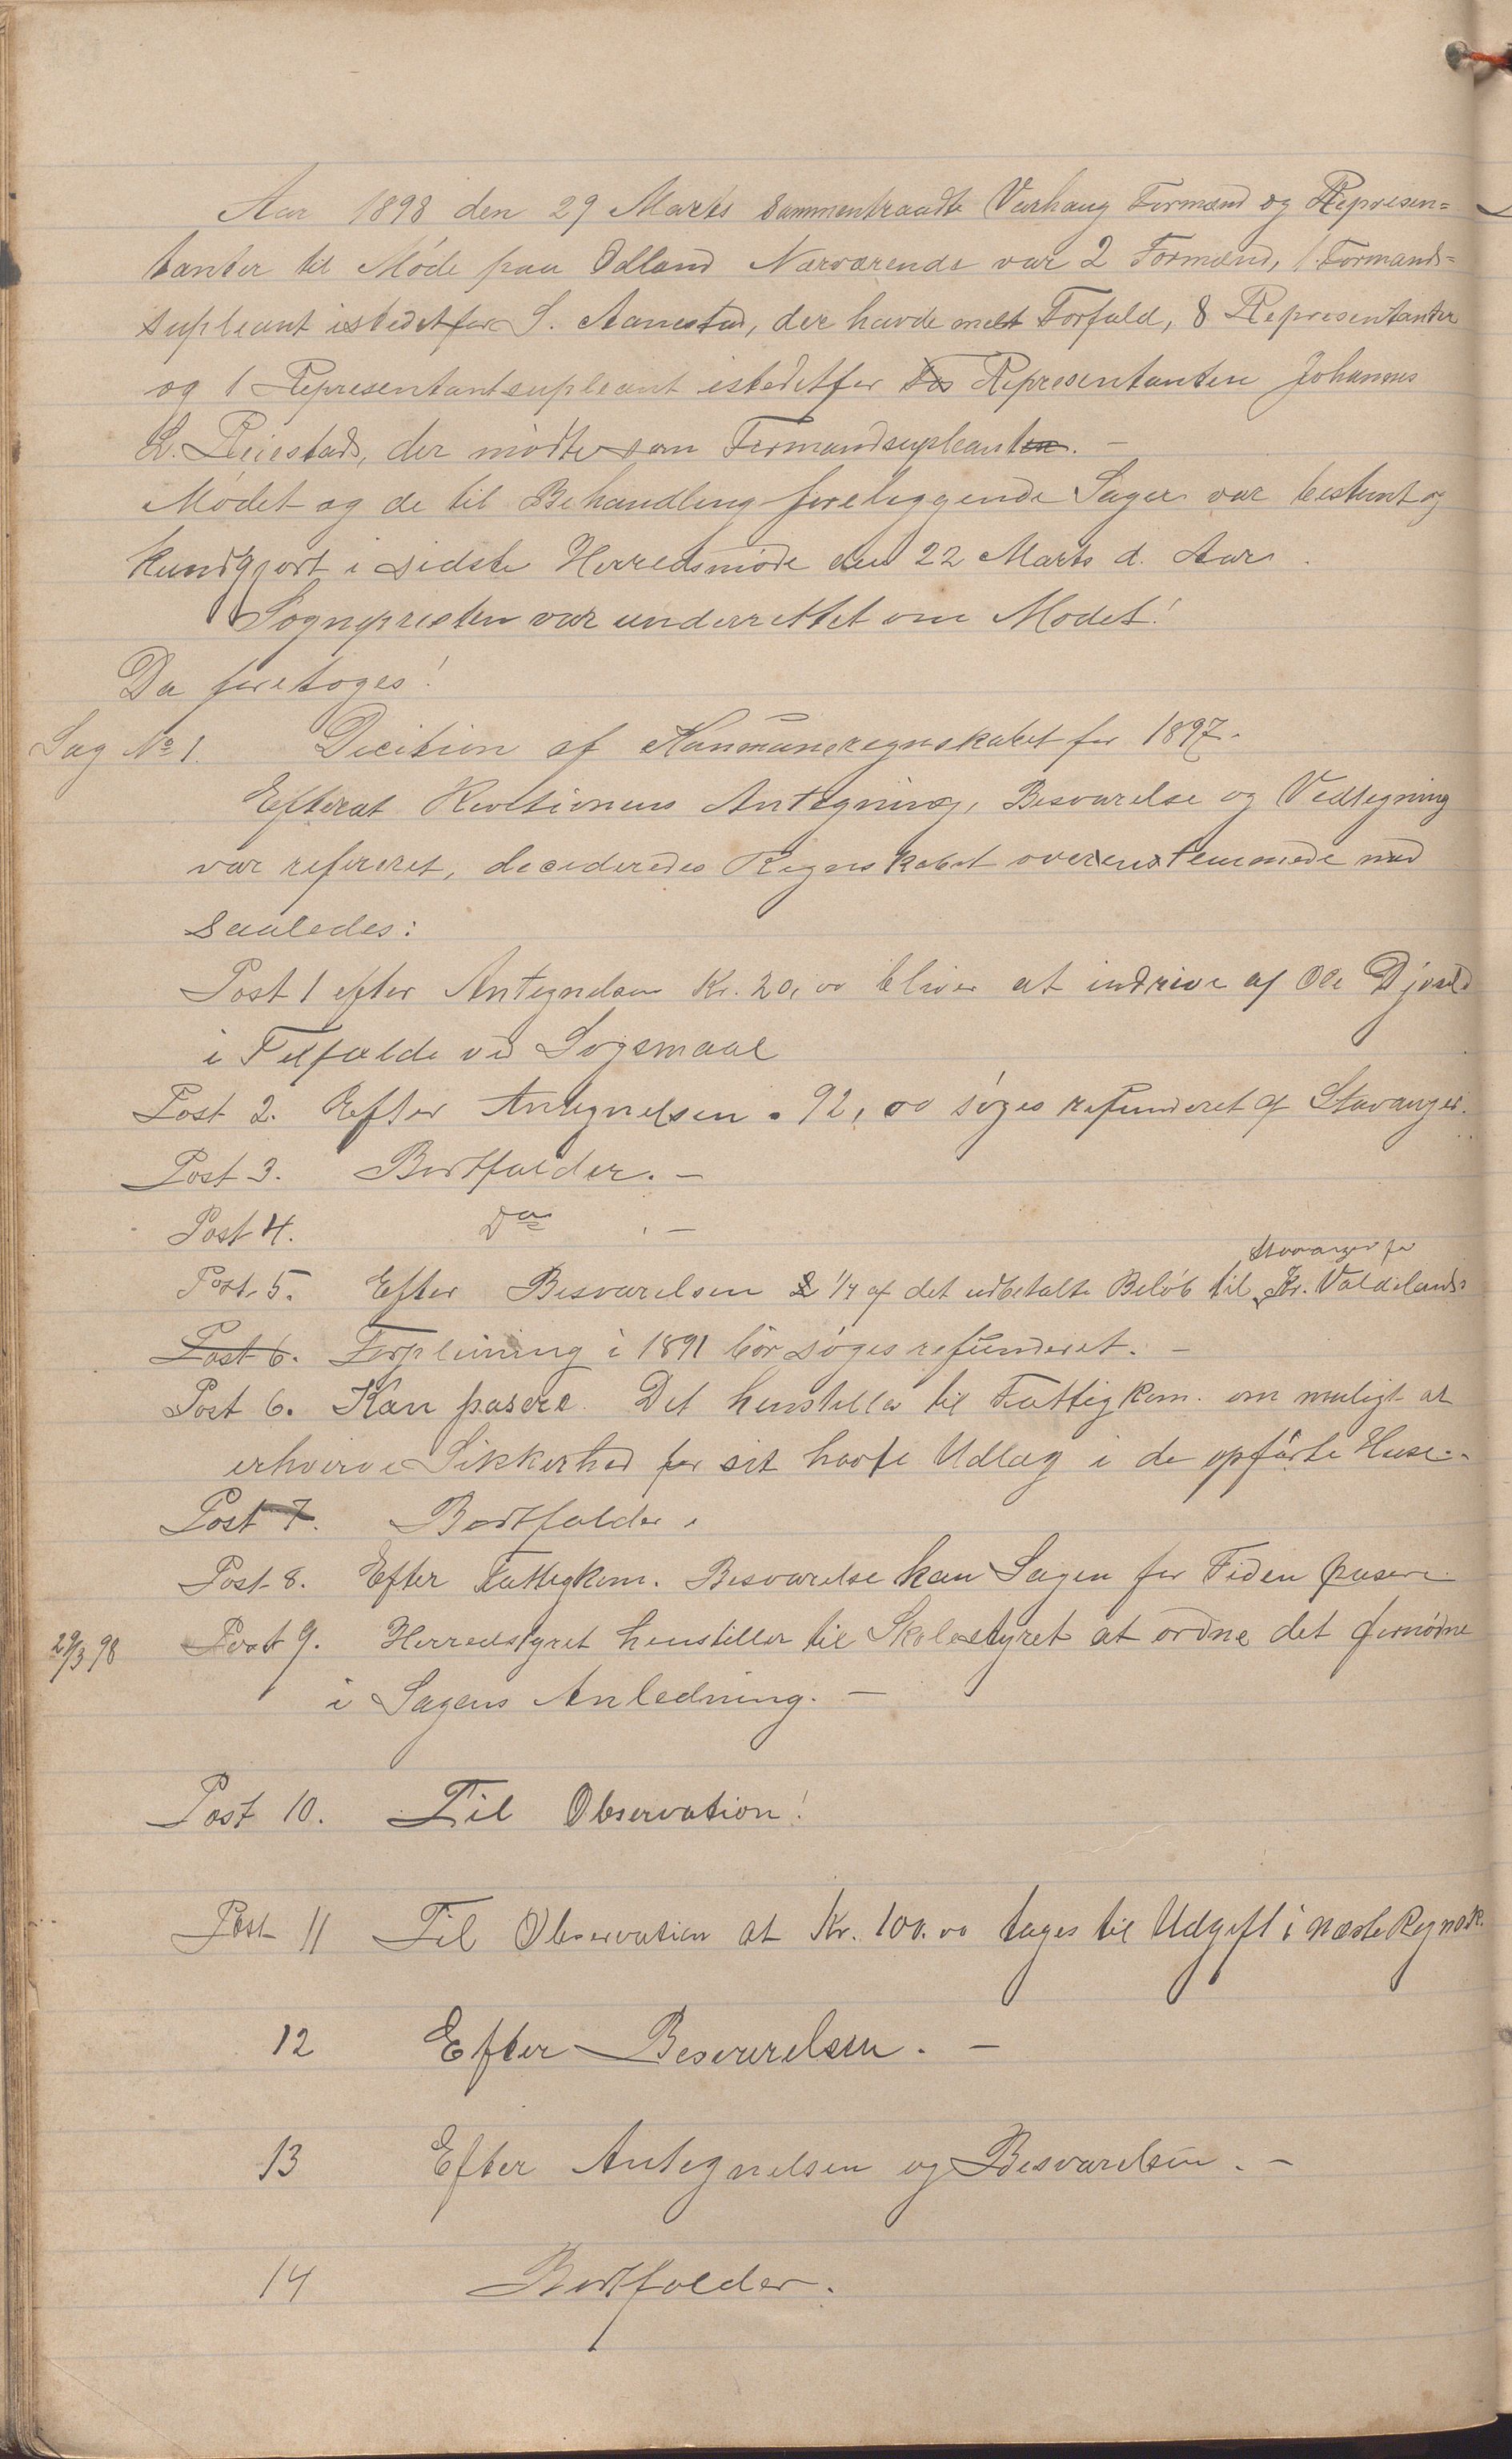 Aar 1898 den 29 Marts sammentraadte Varhaug Formænd og Represen=
tanter til Møde paa Odland Nærværende var 2 Formænd, 1 Formands=
supleant istedetfor S. Aanestad, der havde melt Forfald, 8 Representanter
og 1 Representantsupleant istedetfor Representanten Johannes
L. Reiestads, der mødte som Formandsupleanten. —
Mødet og de til Behandling foreliggende Sager var bestemt og
kundgjort i sidste Herredsmøde den 22 Marts d. Aar.
Sognepresten var underrettet om Mødet!
Da foretoges!
Sag No 1. Decition af Kommuneregnskabet for 1897.
Efterat Revitionens Antegning, Besvarelse og Vedtegning
var refereret, decideredes Regnskabet overenstemmede med
saaledes:
Post 1 efter Antegnelsen Kr. 20,00 bliver at indrive af Ole Djvsl
i Telfælde ved Søgsmaal
Post 2. Efter Antegnelsen " 92,00 søges refunderet af Stavanger.
Post 3. Bortfalder. —
Post 4. Do . —
Stavanger for
Post 5. Efter Besvarelsen 1/4 af det udbetalte Beløb til Kr. Valdelands
Post 6. Forpleining i 1891 bør søges refunderet. —
Post 6. Kan pasere. Det henstilles til Fattigkom. om muligt at
erhverve Sikkerhed for sit havte Udlæg i de opførte Huse.
Post 7. Bortfalder.
Post 8. Efter Fattigkom. Besvarelse kan Sagen for Tiden pasere.
29/3 98 Post 9. Herredstyret henstiller til Skolestyret at ordne det fornødne
i Sagens Anledning. —
Post 10. Til Observation!
Post 11 Til Observation at Kr. 100.00 tages til Udgift i næste Regnsk.
12 Efter Besvarelsen. —
13 Efter Antegnelsen og Besvarelsen. —
14 Bortfalder.